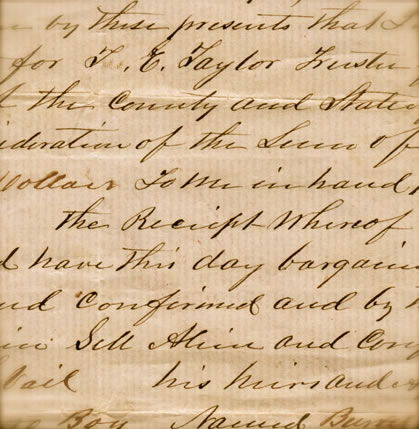 by these presents that I
for T. E. Taylor Trustee
the County and State
ideration of the Sum of
Dollars To Me in hand
the Receipt Whereof
have this day bargain
nd Confirmed and by
in Sell Alien and Con
his heirs and
Boy Named